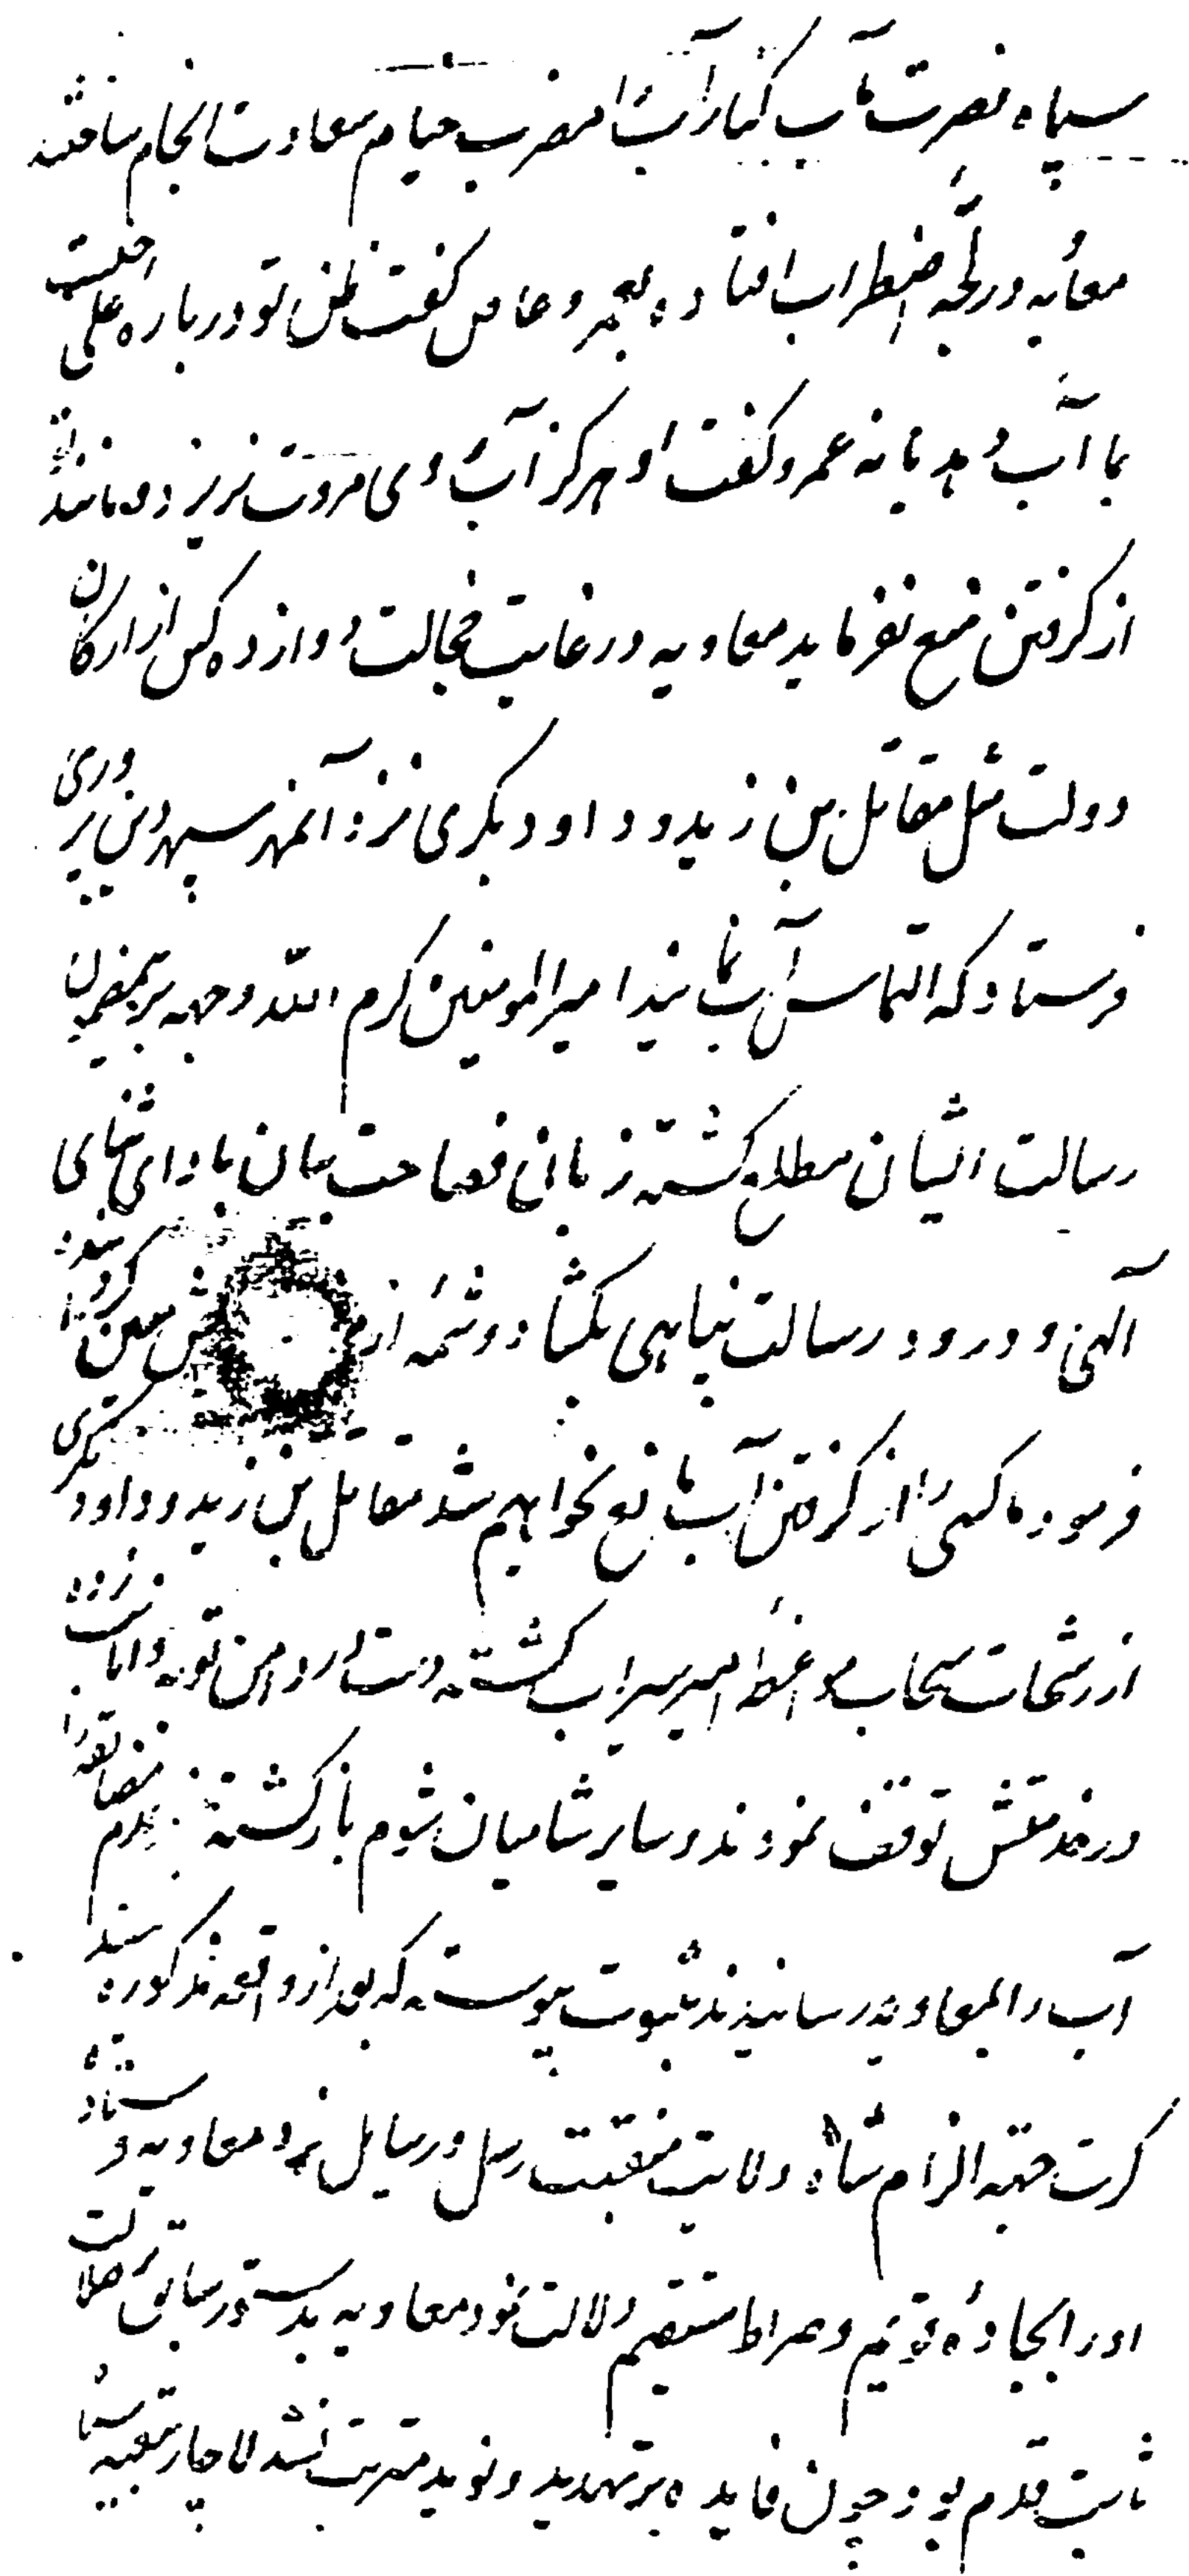 سپاه نصرت مآب کنار آب را مضرب خیام سعادت انجام ساختند
معاویه در لجه اضطراب افتاده بعمرو عاص گفت ظن تو درباره علی چیست
ما را آب دهد یا نه عمرو گفت او هرگز آب روی مروت نریزد و مانند تو
از گرفتن منع نفرماید معاویه در غایت خجالت دوازده کس از ارکان
دولت مثل مقاتل بن زید و داود بکری نزد آنمهر سپهر دین پروری
فرستاد که التماس آب نمایند امیرالمومنین کرم الله وجهه بر مضمون
رسالت ایشان مطلع گشته زبانی فصاحت بیان بادای ثنای
آلهی و درود رسالت پناهی بکشاد و شمه از
فرمود ما کسی را از گرفتن آب مانع نخواهیم شد مقاتل بن زید و داود بکری
از رشحات سحاب مواعظ امیر سیراب گشته دست در دامن توبه و انابت زده
در خدمتش توقف نمودند و سایر شامیان شوم بازگشته عدم مضایقه
آب را بمعاویه رسانیدند بثبوت پیوسته که بعد از واقعه مذکوره چند
کرت جهته الزام شاه ولایت منقبت رسل و رسایل نزد معاویه فرستاده
او را بجاده قویم و صراط مستقیم دلالت نمود معاویه بدستور سابق بر ضلالت
ثابت قدم بود چون فایده بر تهدید و نوید مترتب نشد لاچار بتعبیه سپاه